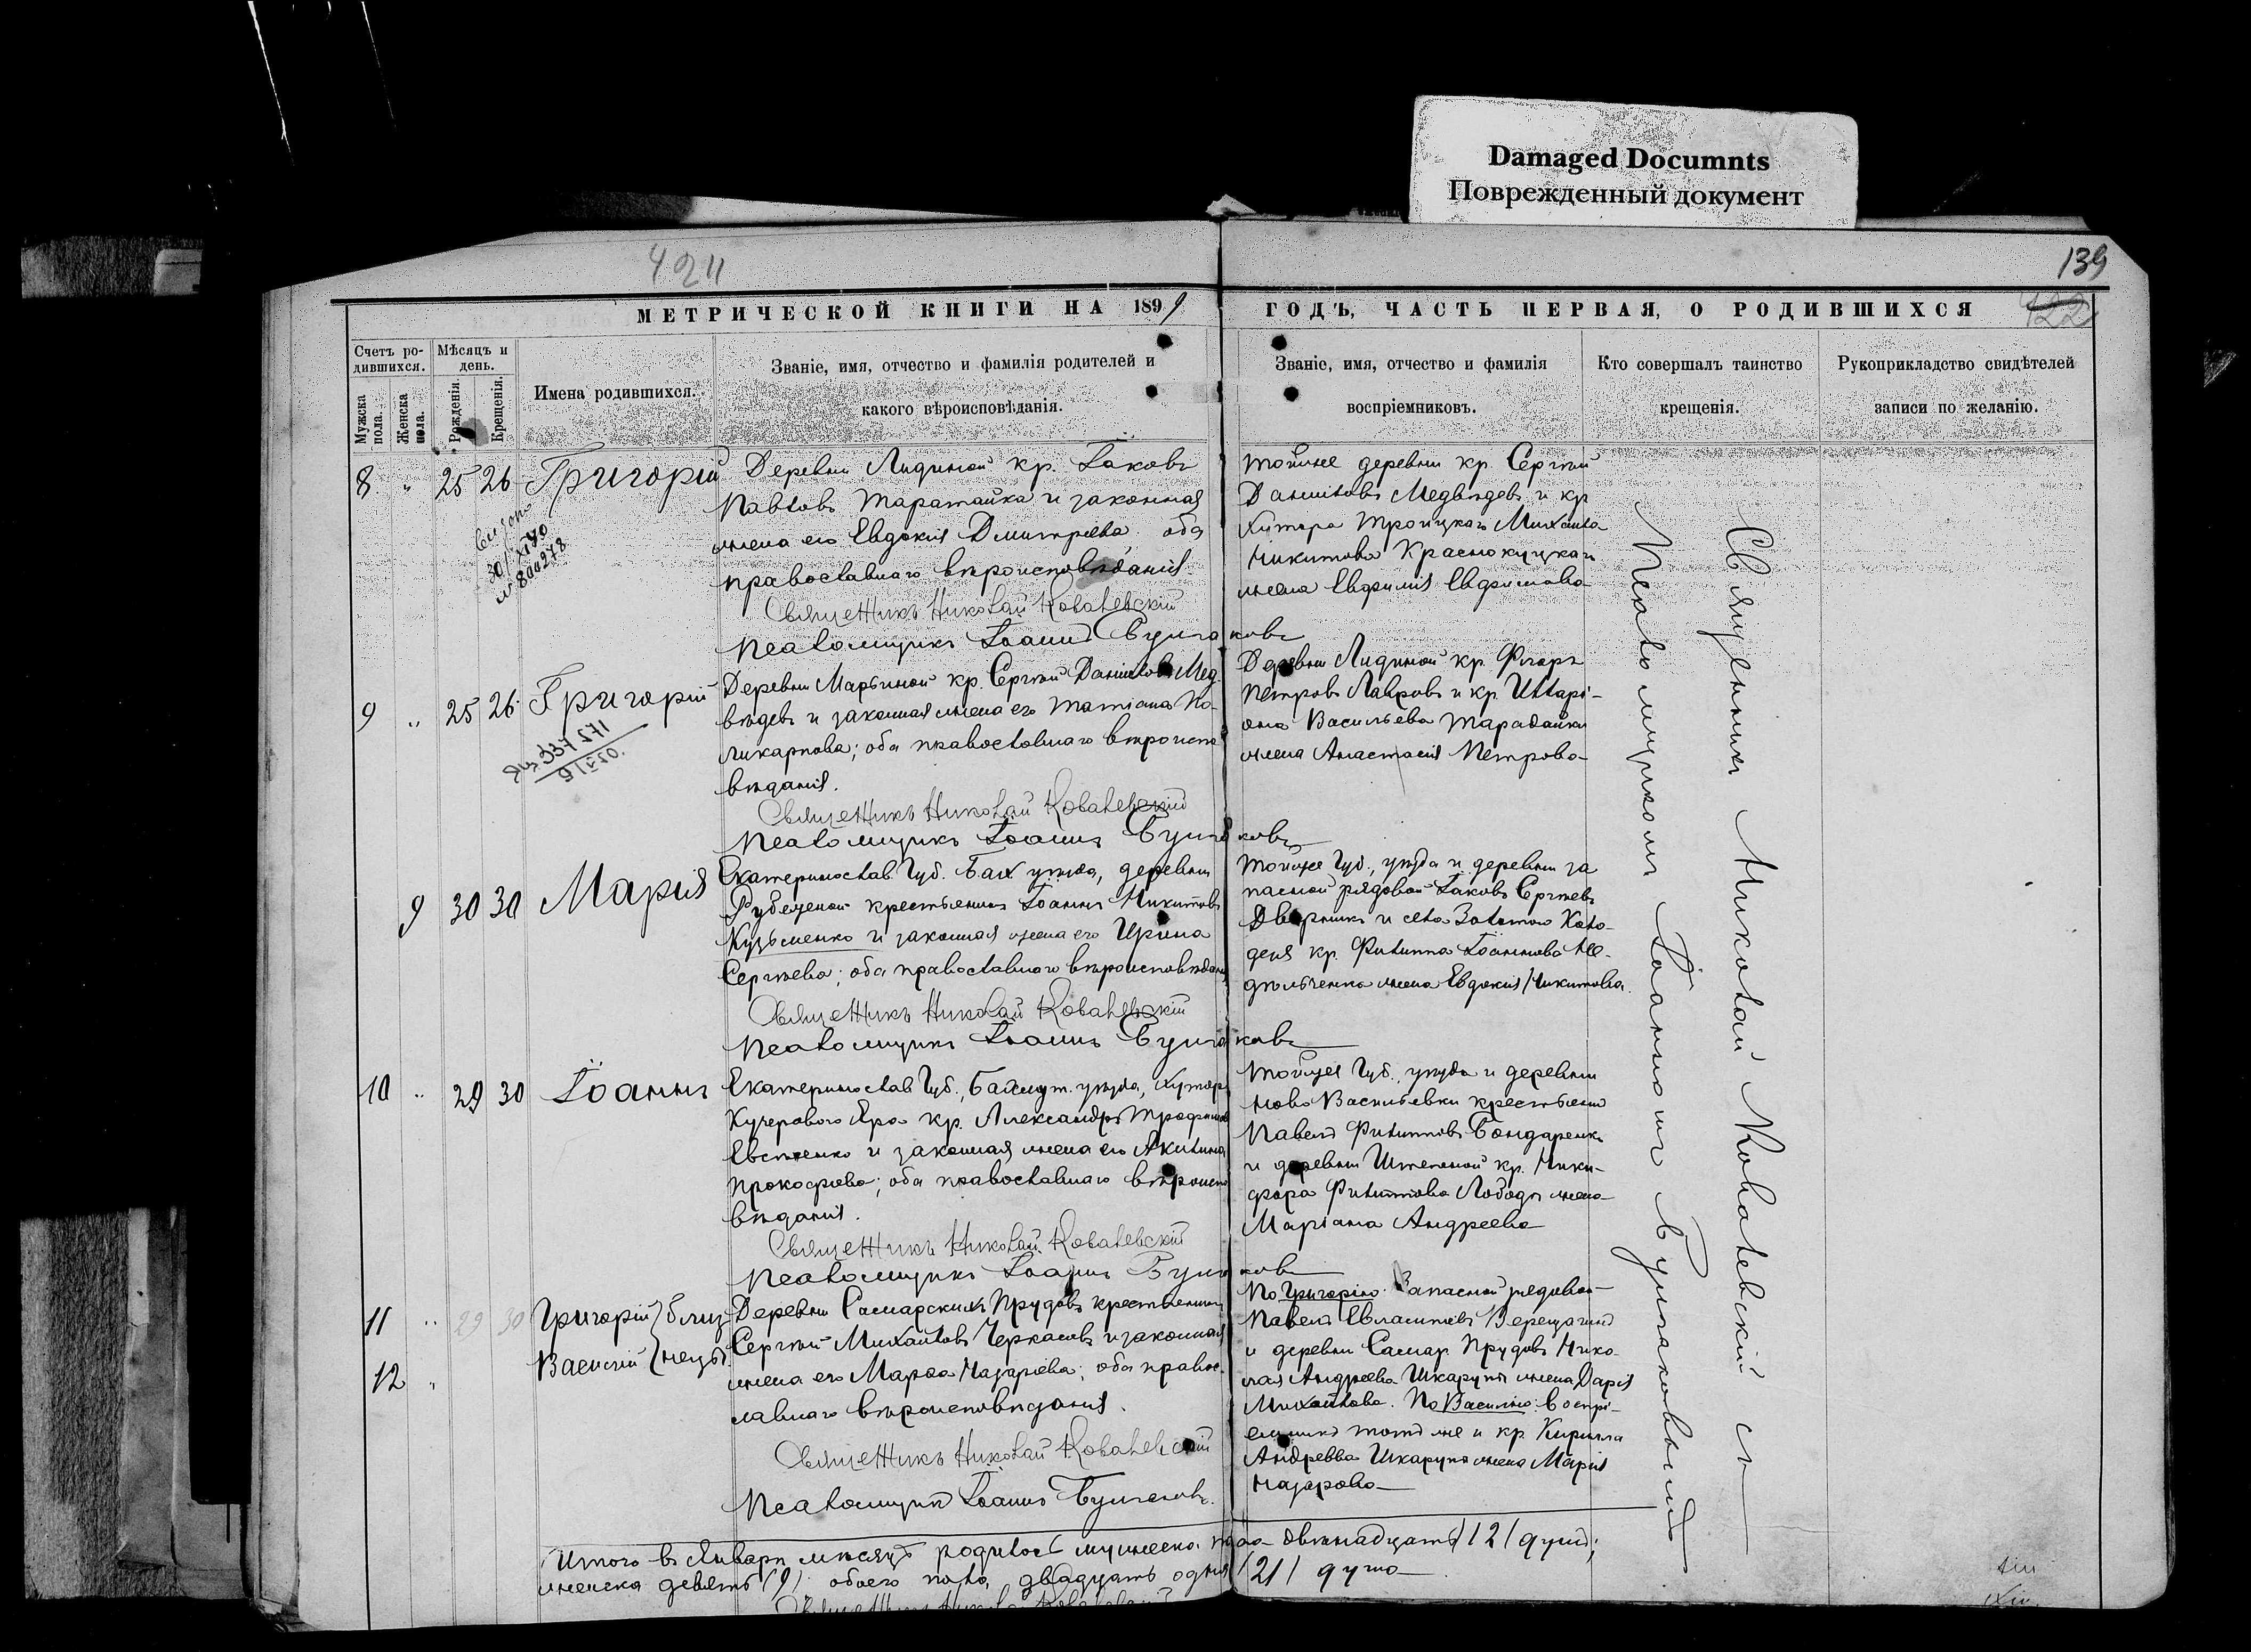 Damaged Documnts
Поврежденный документ
139
МЕТРИЧЕСКОЙ КНИГИ НА 1899
ГОДЪ, ЧАСТЬ ПЕРВАЯ, О РОДИВШИХСЯ
122
Счетъ ро-
дившихся.
Мужска
пола.
Женска
пола.
Мѣсяцъ и
день.
Рожденія.
Крещенія.
Имена родившихся.
Званіе, имя, отчество и фамилія родителей и
какого вѣроисповѣданія.
Званіе, имя, отчество и фамилія
воспріемниковъ.
Кто совершалъ таинство
крещенія.
Рукоприкладство свидѣтелей
записи по желанію.
8 " 25 26 Григорій
Деревни Лидиной кр. Іаковъ
Павловъ Таратайка и законная
жена его Евдокія Димитріева оба
православнаго вѣроисповѣданія.
Священникъ Николай Ковалевскій
Псаломщикъ Іоаннъ Булгаковъ
тойже деревни кр. Сергѣй
Даниловъ Медвѣдевъ и кр
хутора Троицкаго Михаила
Никитова Краснокуцкаго
жена Евфимія Евфимова
9 " 25 26 Григорій
Деревни Марьиной кр. Сергѣй Даниловъ Мед
вѣдевъ и законная жена его Татіана По-
ликарпова; оба православнаго вѣроиспо
вѣданія.
Священникъ Николай Ковалевскій
Псаломщикъ Іоаннъ Булгаковъ
Деревни Лидиной кр. Флоръ
Петровъ Лавровъ и кр. Иларі-
она Васильева Тарадайки
жена Анастасія Петрова
9 30 30 Марія
Екатеринослав. Губ. Бах уѣзда, деревни
крестьянинъ Іоаннъ Никитовъ
Кузьменко и законная жена его Ирина
Сергѣева; оба православнаго вѣроисповѣданія
Священникъ Николай Ковалевскій
Псаломщикъ Іоаннъ Булгаковъ
Тойже Губ., уѣзда и деревни за
пасной рядовой Іаковъ Сергѣевъ
Дворникъ и села Золотого Коло-
дезя кр. Филиппа Іоаннова Не-
дѣльченка жена Евдокія Никитова.
10 " 29 30 Іоаннъ
Екатеринослав Губ., Бахмут. уѣзда, Хутора
Кучерового Яра кр. Александръ Трофимовъ
Евсѣенко и законная жена его Акилина
Прокофіева; оба православнаго вѣроиспо
вѣданія.
Священникъ Николай Ковалевскій
Псаломщикъ Іоаннъ Булгаковъ
Тойже Губ., уѣзда и деревни
Ново Васильевки крестьянинъ
Павелъ Филипповъ Бондаренко
и деревни Штепиной кр. Ники-
фора Филиппова Лободы жена
Маріана Андреева
11 " 29 30 Григорій } близ
12 " Василій } нецы.
Деревни Самарскихъ Прудовъ крестьянинъ
Сергѣй Михайловъ Черкасовъ и законная
жена его Марфа Назаріева; оба правос-
лавнаго вѣроисповѣданія.
Священникъ Николай Ковалевскій
Псаломщикъ Іоаннъ Булгаковъ.
По Григорію: Запасной рядовой
Павелъ Верещагинъ
и деревни Самар. Прудовъ Нико-
лая Андреева Шкарупы жена Дарія
Михайлова. По Василію: Воспрі-
емникъ тотъ же и кр. Кирилла
Андреева Шкарупы жена Марія
Назарова
Священникъ Николай Ковалевскій съ
Псаломщикомъ Іоанномъ Булгаковымъ
Итого въ Январѣ мѣсяцѣ родилось мужеска пола двѣнадцать /12/ душъ;
женска девять /9/: обоего пола, двадцать одна /21/ душа
Священникъ Николай Ковалевскій